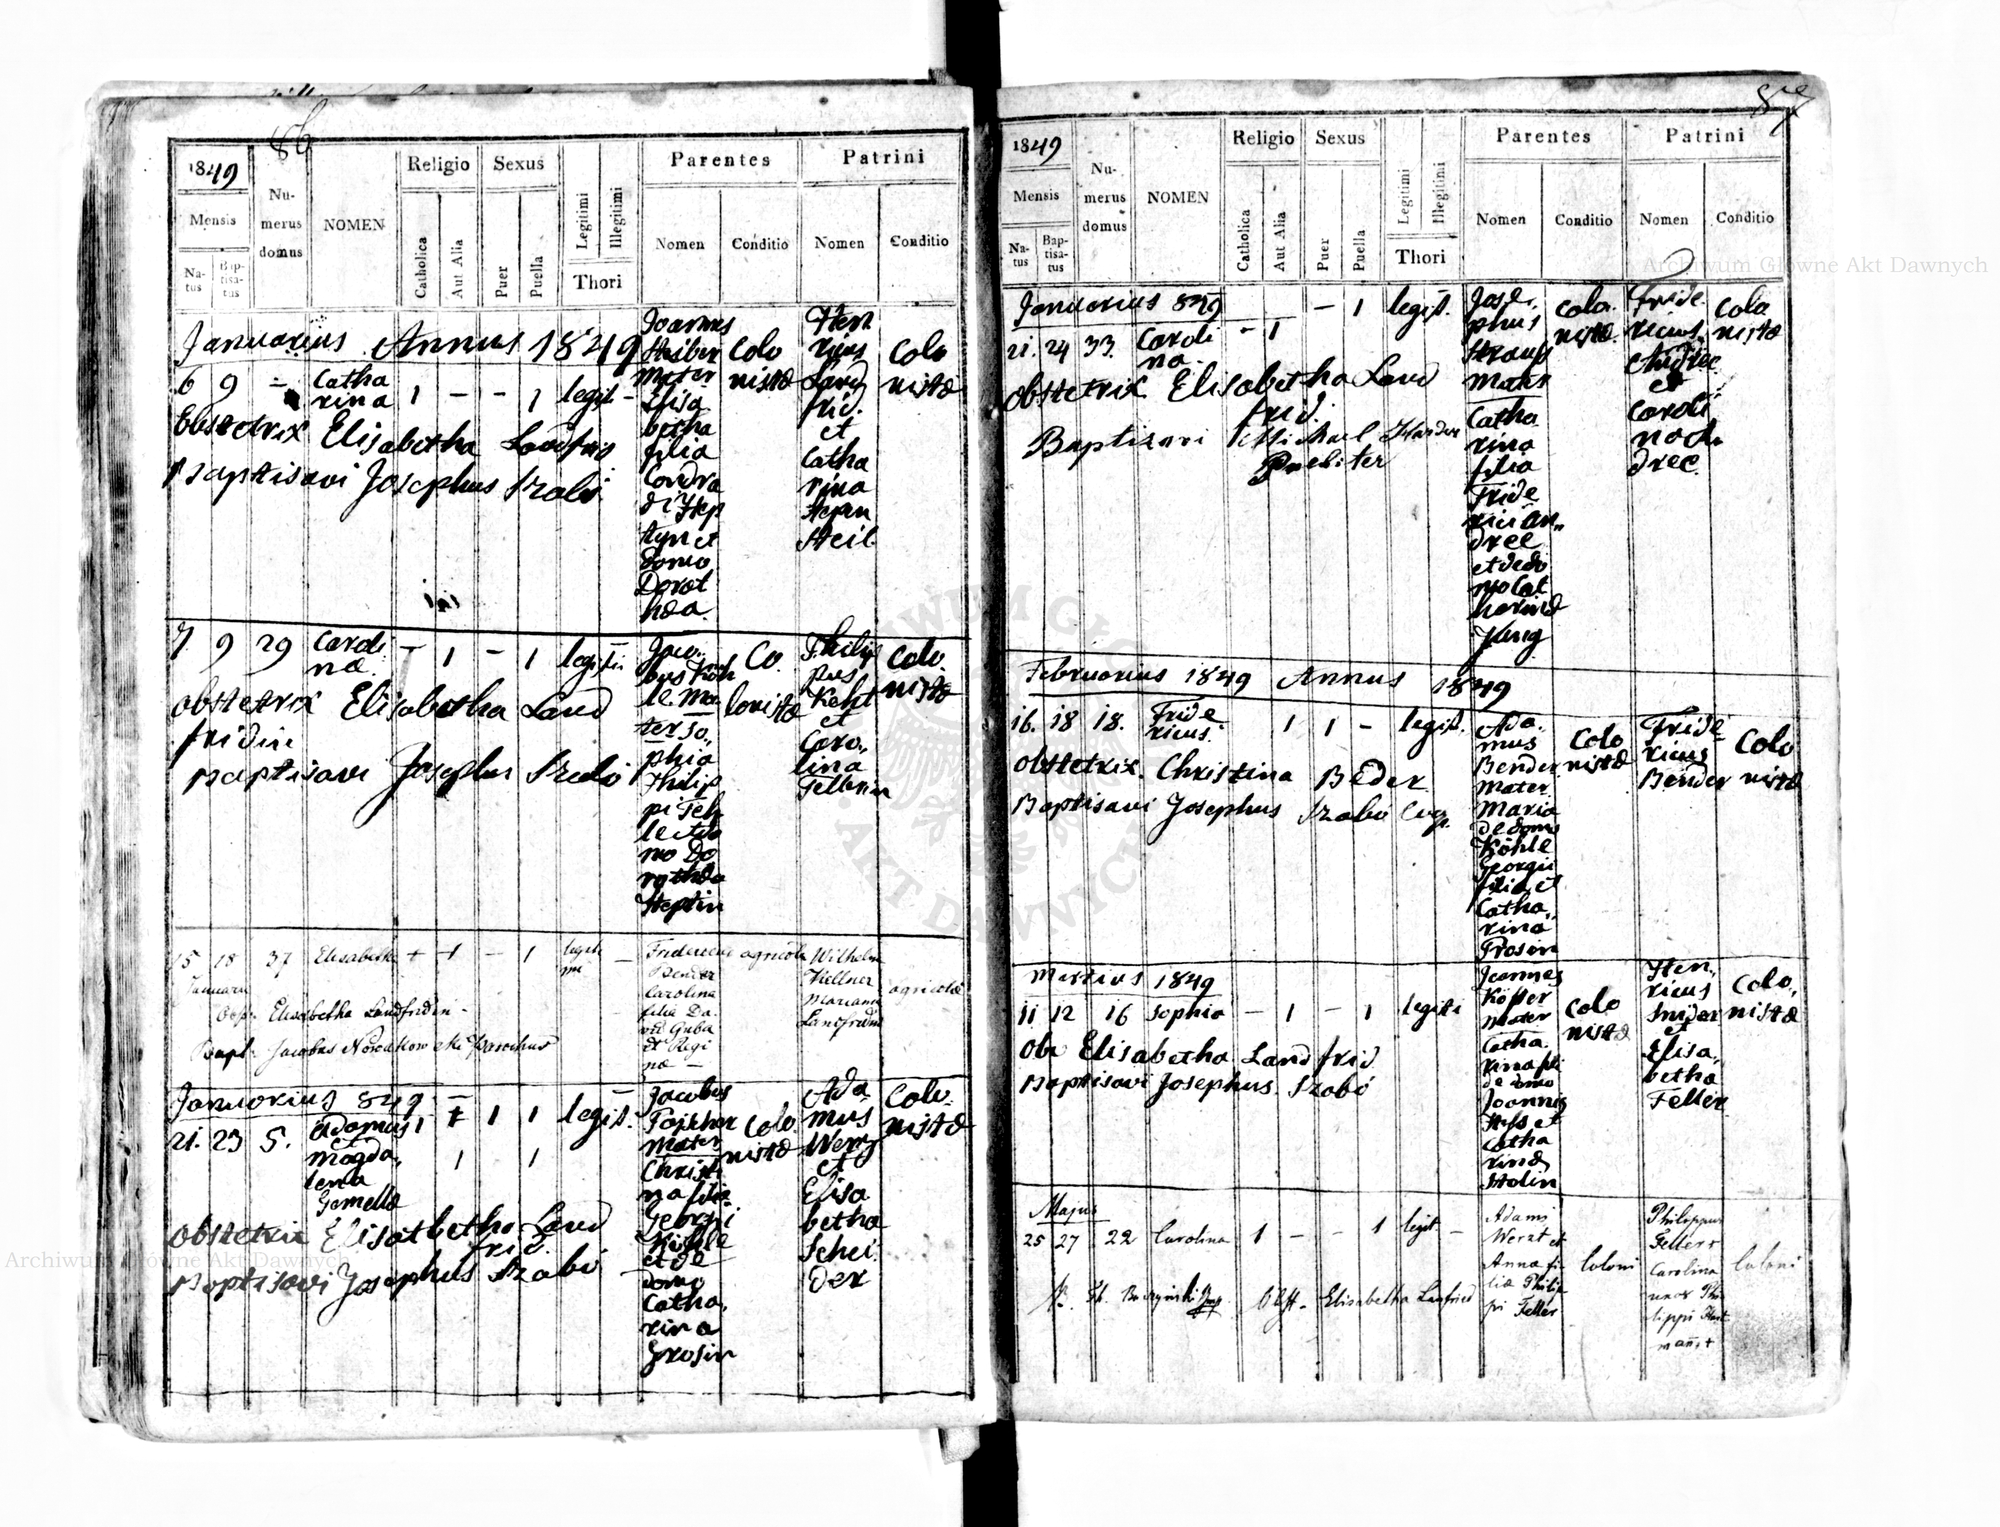 86
1849
Mensis
Na-
tus
Bap-
tisa-
tus
Nu-
merus
domus
NOMEN
Religio
Catholica
Aut Alia
Sexus
Puer
Puella
Legitimi
Illegitimi
Thori
Parentes
Nomen
Conditio
Patrini
Nomen
Conditio
Januarius Annus 1849
6 9 -
Catha
rina
1 - - 1 legit -
Joannes
Mater
Elisa
betha
filia
Dorot
hea.
Colo
nistæ
Hen
ricus
Land
frid.
et
Catha
rina
Colo
nistæ
Obstetrix Elisabetha Landfrid
Baptisavi Josephus Szabo
7 9 29
Caroli
na
- 1 - 1
Jaco
bus
Mater So
phia
Philip
pi
Do
rothea
Co
lonistæ
Philip
pus
Kehl
et
Caro
lina
Colo
nistæ
obstetrix Elisabetha Land
fridin
Baptisavi Josephus Szabó
15 18 37 Elisabetha + 1 - 1
legiti
me
-
Januarii
Fridericus
Bender
Carolina
filia Da
vid Huba
et Regi
na
agricola
Wilhelm
Kellner
Mariana
Landfridin
agricolæ
Obst. Elisabetha Landfridin -
Bapt. Jacobus Nowakowski Parochus
Januarius 849
21. 23 5.
Adamus
et
Magda
lena
Gemellæ
1 1 legit.
1 1
Jacobus
Mater
Christi
na filia
Georgi
Köhle
et de
domo
Catha
rina
Grosin
Colo
nistæ
Ada
mus
Wenz
et
Elisa
betha
Schei
der
Colo
nistæ
obstetrix Elisatbetha Land
frid.
Baptisavi Josephus Szabó
87
1849
Mensis
Na-
tus
Bap-
tisa-
tus
Nu-
merus
domus
NOMEN
Religio
Catholica
Aut Alia
Sexus
Puer
Puella
Legitimi
Illegitimi
Thori
Parentes
Nomen
Conditio
Patrini
Nomen
Conditio
Januarius 849
21. 24 33.
Caroli
na.
- 1 - 1 legit.
Jose
phus
Straus
Mater
Catha
rina
filia
Fride
rici An
dree
et de do
mo Cat
harinæ
Jung
Colo
nistæ
Fride
ricus
Andree
et
Caroli
na An
dree
Colo
nistæ
obstetrix Elisabetha Land
frid.
Baptisavi Michael Harder
Februarius 1849 Annus 1849
16. 18 18.
Fride
ricus.
1 1 - legit.
Ada
mus
Bender
Mater
Maria
de domo
Köhle
Georgii
filia et
Catha
rina
Grosin
Colo
nistæ
Fride
ricus
Bender
Colo
nistæ
obstetrix. Christina Beder
Baptisavi Josephus Szabó
Martius 1849
11 12 16 Sophia - 1 - 1 legiti
Joannes
Mater
Catha
rina fili
de domo
Joannis
Hess et
Catha
rinæ
Stolin
Colo
nistæ
Hen
ricus
Snider
et
Elisa
betha
Feller
Colo
nistæ
Obs Elisabetha Landfrid
Baptisavi Josephus Szabó
Majus
25 27 22 Carolina 1 - - 1 legit -
Adami
Wenzt et
Anna fi
lia Philip
pi Feller
Coloni
Philippus
Fellerr
Carolina
uxor Phi
lippi Hart
mann +
Coloni
Obst. Elisabetha Lanfried
Archiwum Główne Akt Dawnych
Archiwum Główne Akt Dawnych
ARCHIWUM GŁÓWNE AKT DAWNYCH